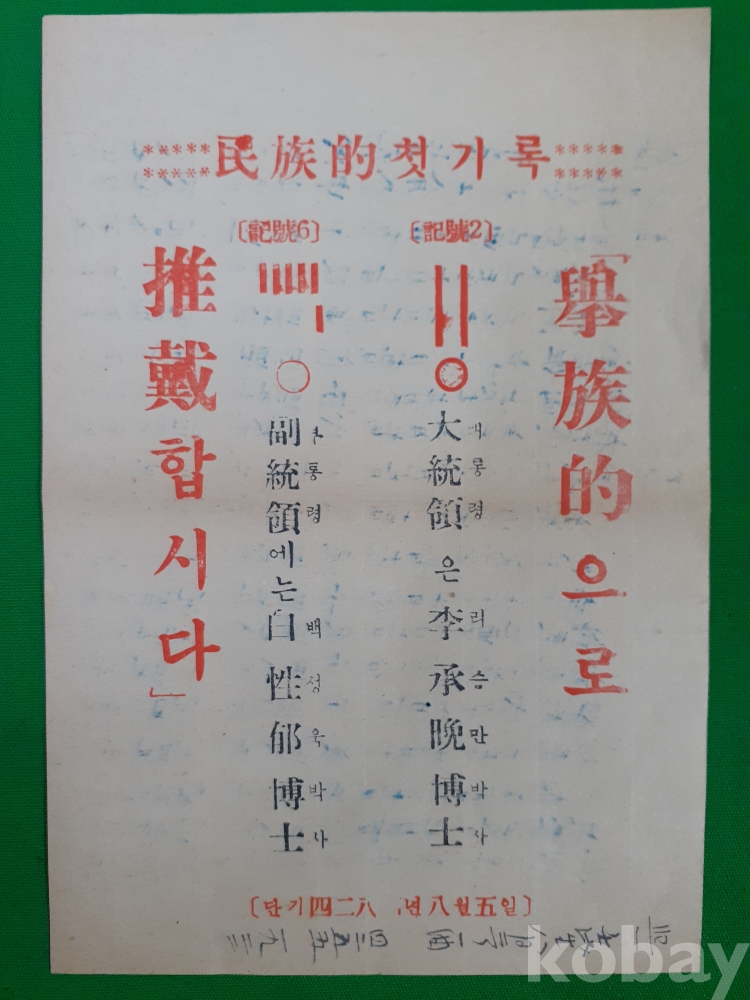 民族的첫기록
「擧族的으로
〔記號2〕
大統領은 李承晩博士
대통령 리승만박사
〔記號6〕
副統領에는 白性郁博士
부통령 백성욱박사
推戴합시다」
〔단기四二八 년八월五일〕
kobay